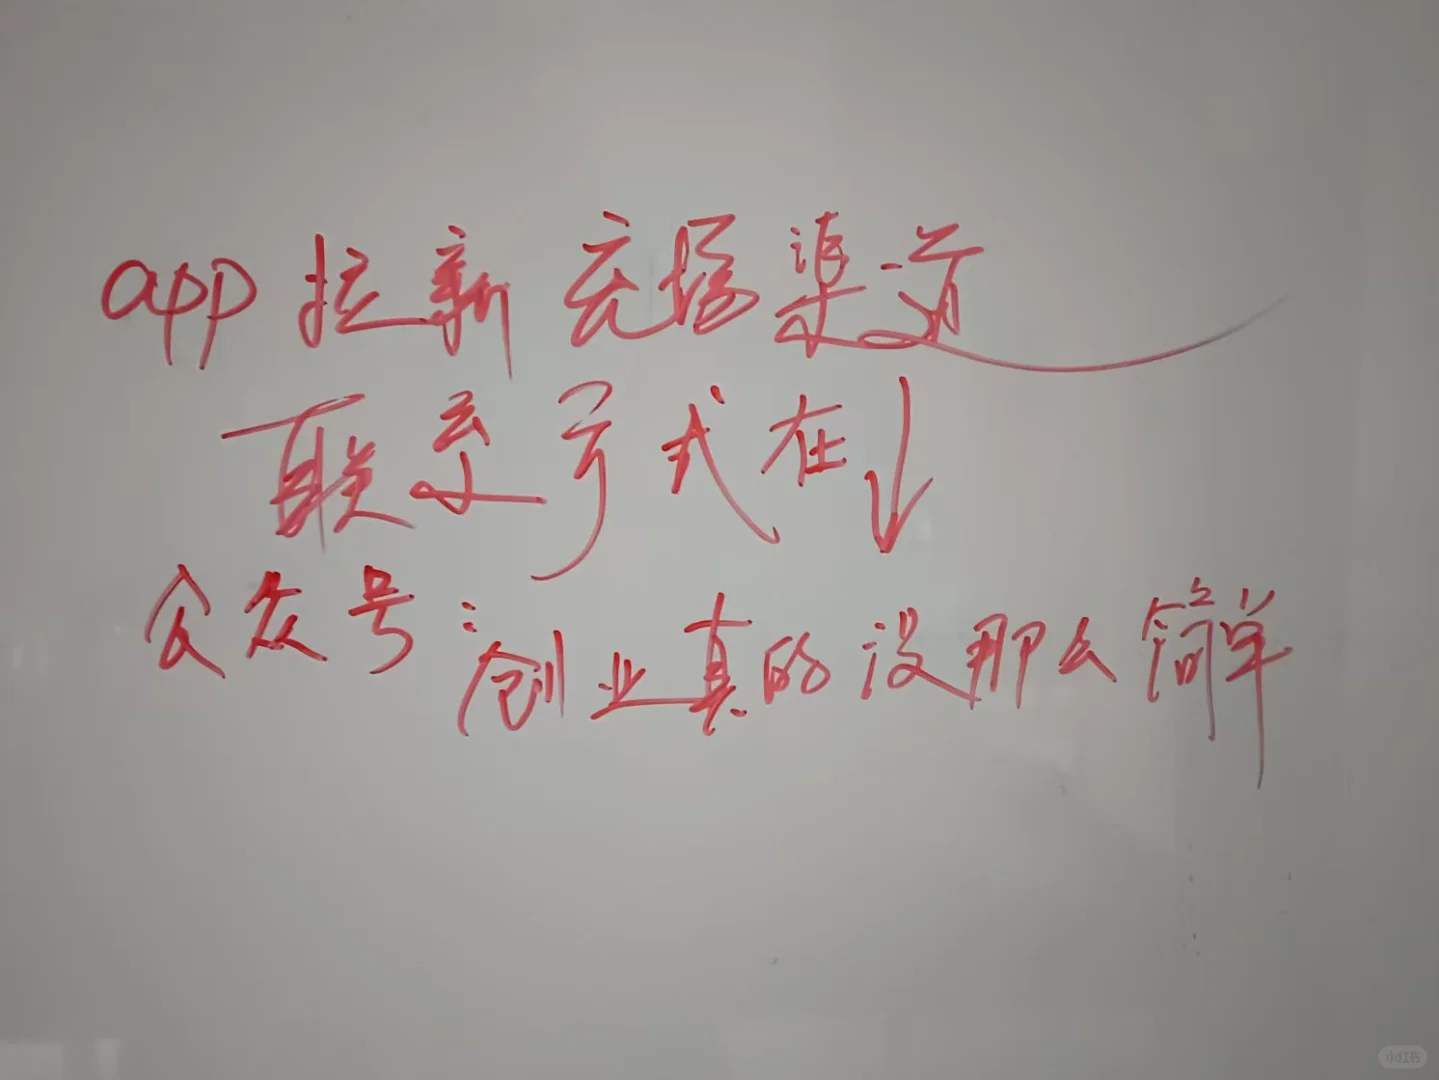 app拉新充场渠道
联系方式在↓
公众号:创业真的没那么简单
小红书